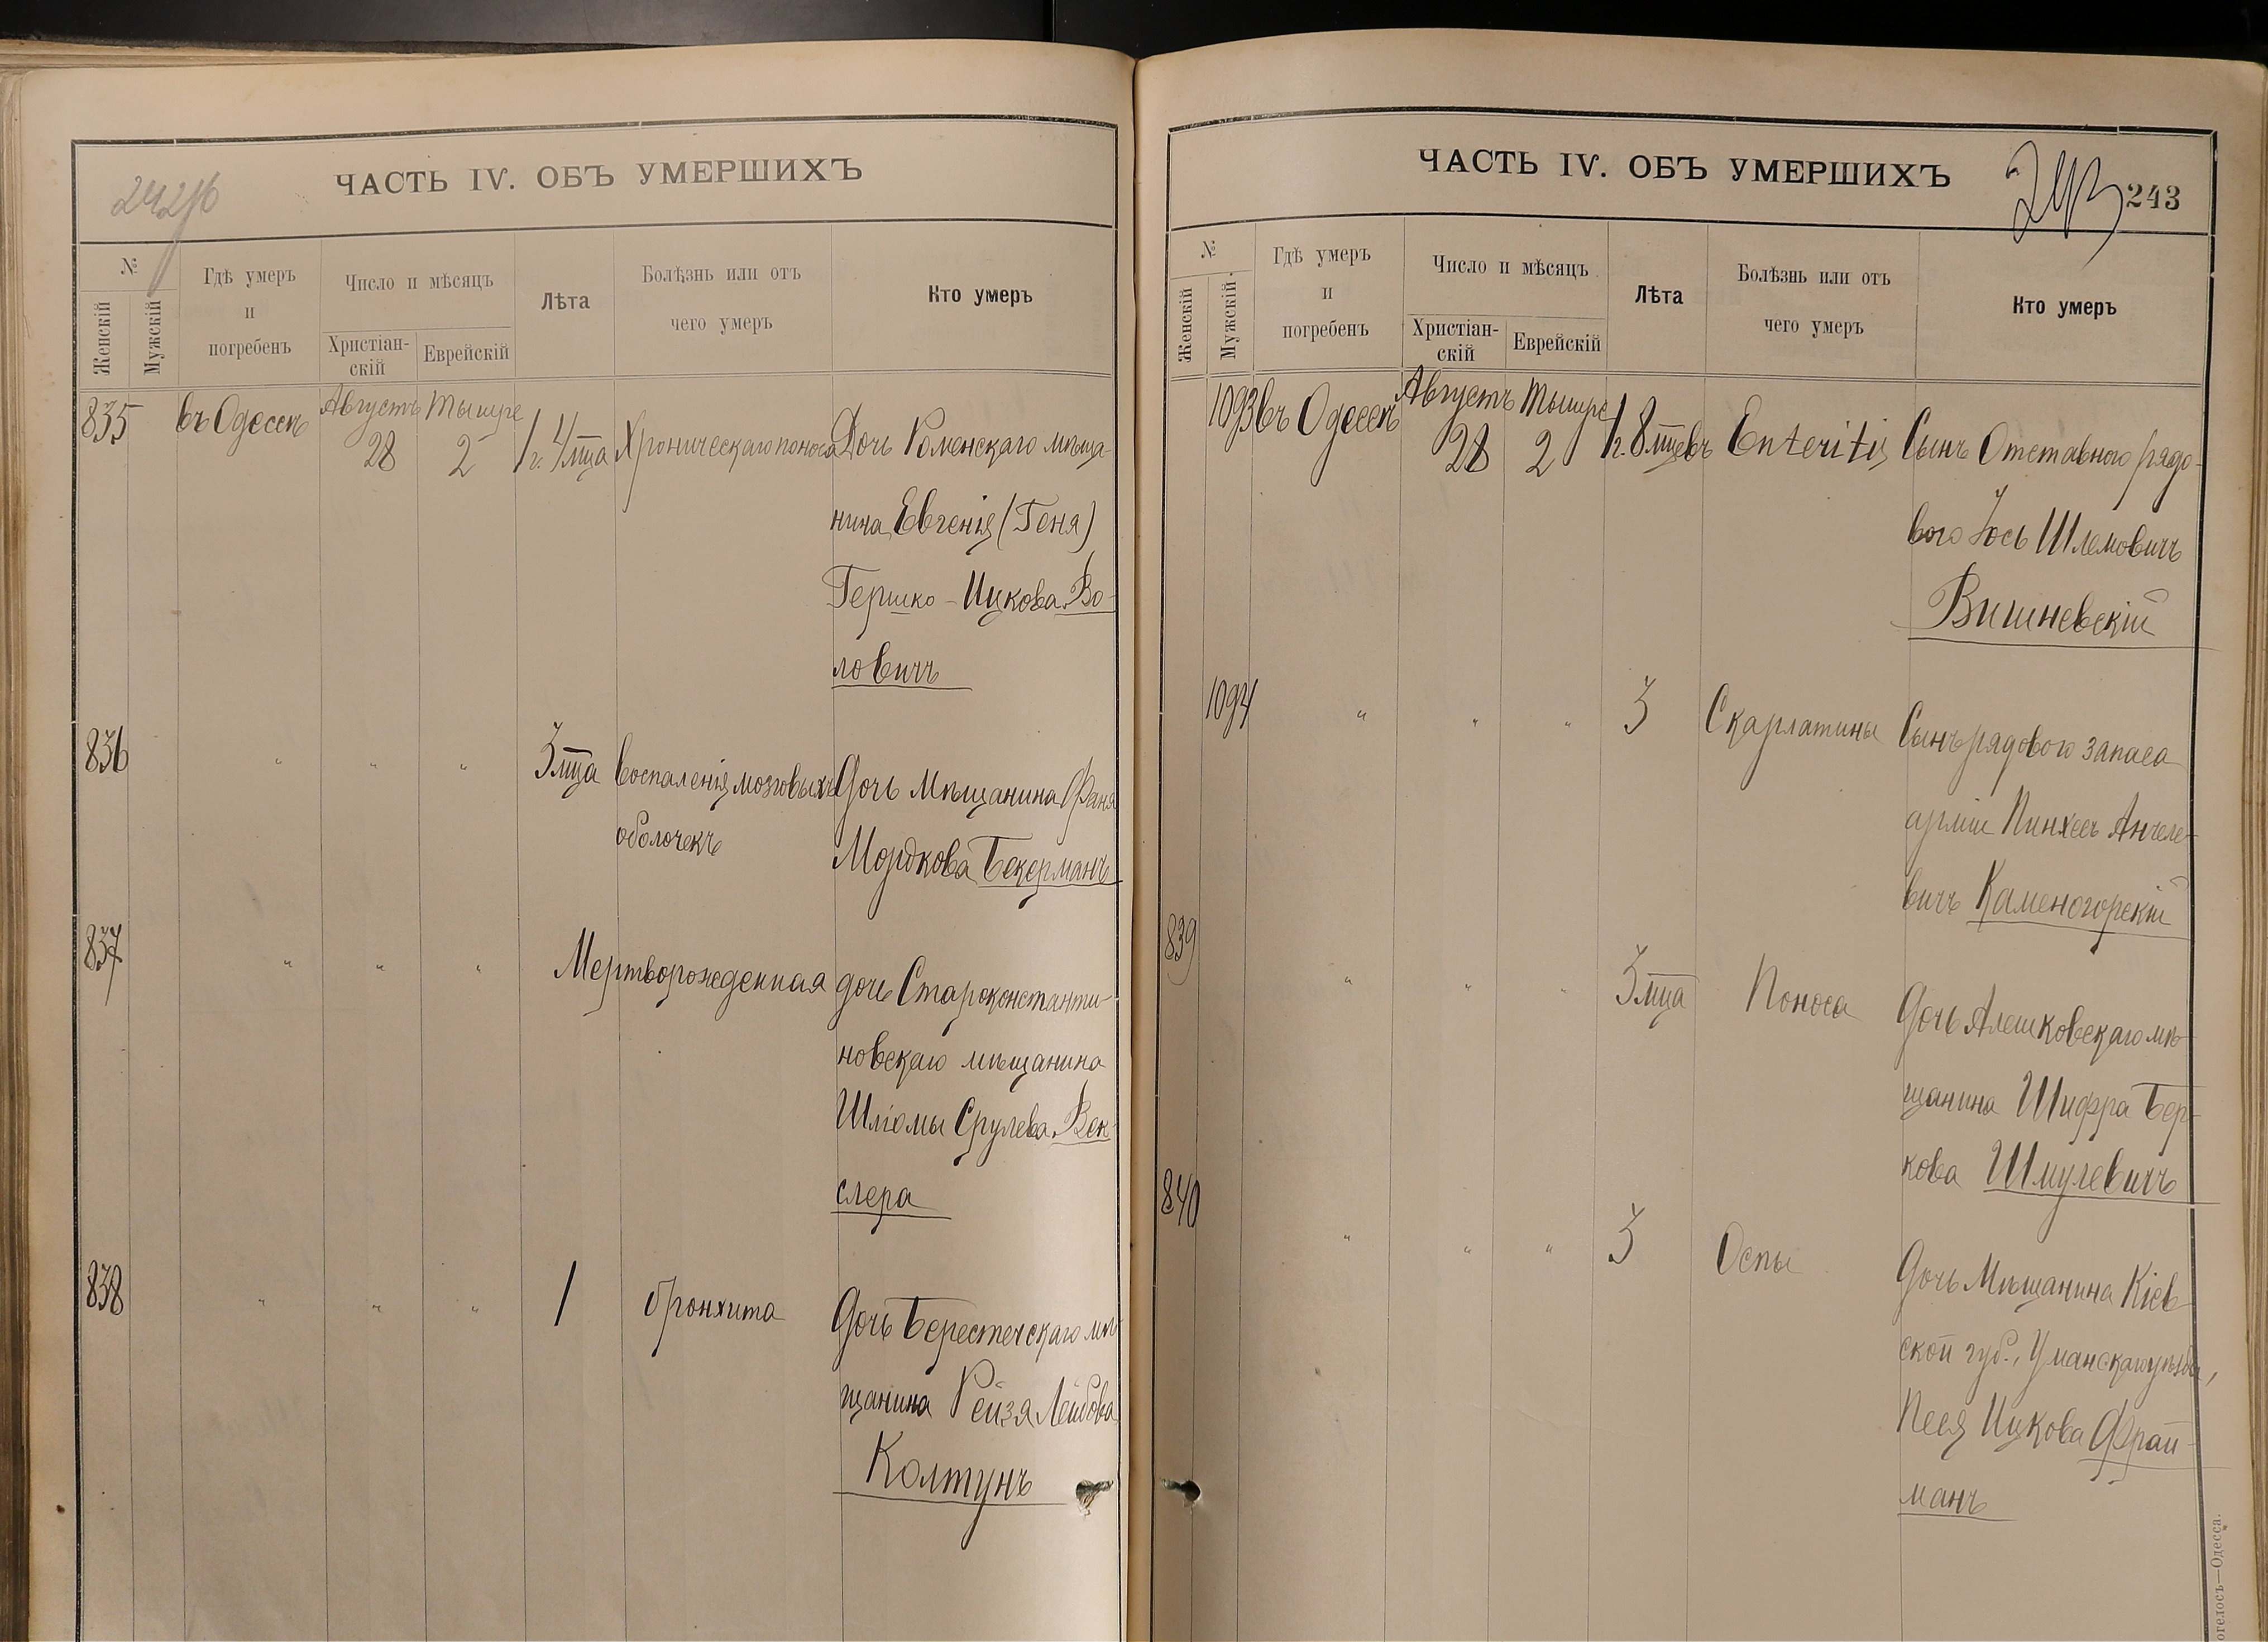 242 об
ЧАСТЬ IV. ОБЪ УМЕРШИХЪ
№
Женскій
Мужскій
Гдѣ умеръ
и
погребенъ
Число и мѣсяцъ
Христіан-
скій
Еврейскій
Лѣта
Болѣзнь или отъ
чего умеръ
Кто умеръ
835 въ Одессѣ Августъ 28 Тышре 2 1 г. 4 мца Хроническаго поноса Дочь Роменскаго мѣща-
нина Евгенія (Геня)
Гершко-Ицкова Во-
ловичъ
836 " " " 3 мца воспаленія мозговыхъ Дочь Мѣщанина Фаня
оболочекъ Мордкова Бекерманъ
837 " " " Мертворожденная дочь Староконстанти-
новскаго мѣщанина
Шліомы Срулева Век-
слера
838 " " " 1 бронхита Дочь Берестечскаго мѣ-
щанина Рейзя Лейбова
Колтунъ
ЧАСТЬ IV. ОБЪ УМЕРШИХЪ
243 243
№
Женскій
Мужскій
Гдѣ умеръ
и
погребенъ
Число и мѣсяцъ
Христіан-
скій
Еврейскій
Лѣта
Болѣзнь или отъ
чего умеръ
Кто умеръ
1093 въ Одессѣ Августъ 28 Тышре 2 1 г. 8 мцевъ Enteritis Сынъ Отставного рядо-
вого Іось Шлемовичъ
Вишневскій
1094 " " " 3 Скарлатины Сынъ рядового запаса
арміи Пинхесъ Анчеле-
вичъ Каменогорскій
839 " " " 3 мца Поноса Дочь Алешковскаго мѣ-
щанина Шифра Бер-
кова Шмулевичъ
840 " " " 3 Оспы Дочь Мѣщанина Кіев-
ской губ., Уманскаго уѣзда,
Песя Ицкова Фрай-
манъ
огелосъ—Одесса.